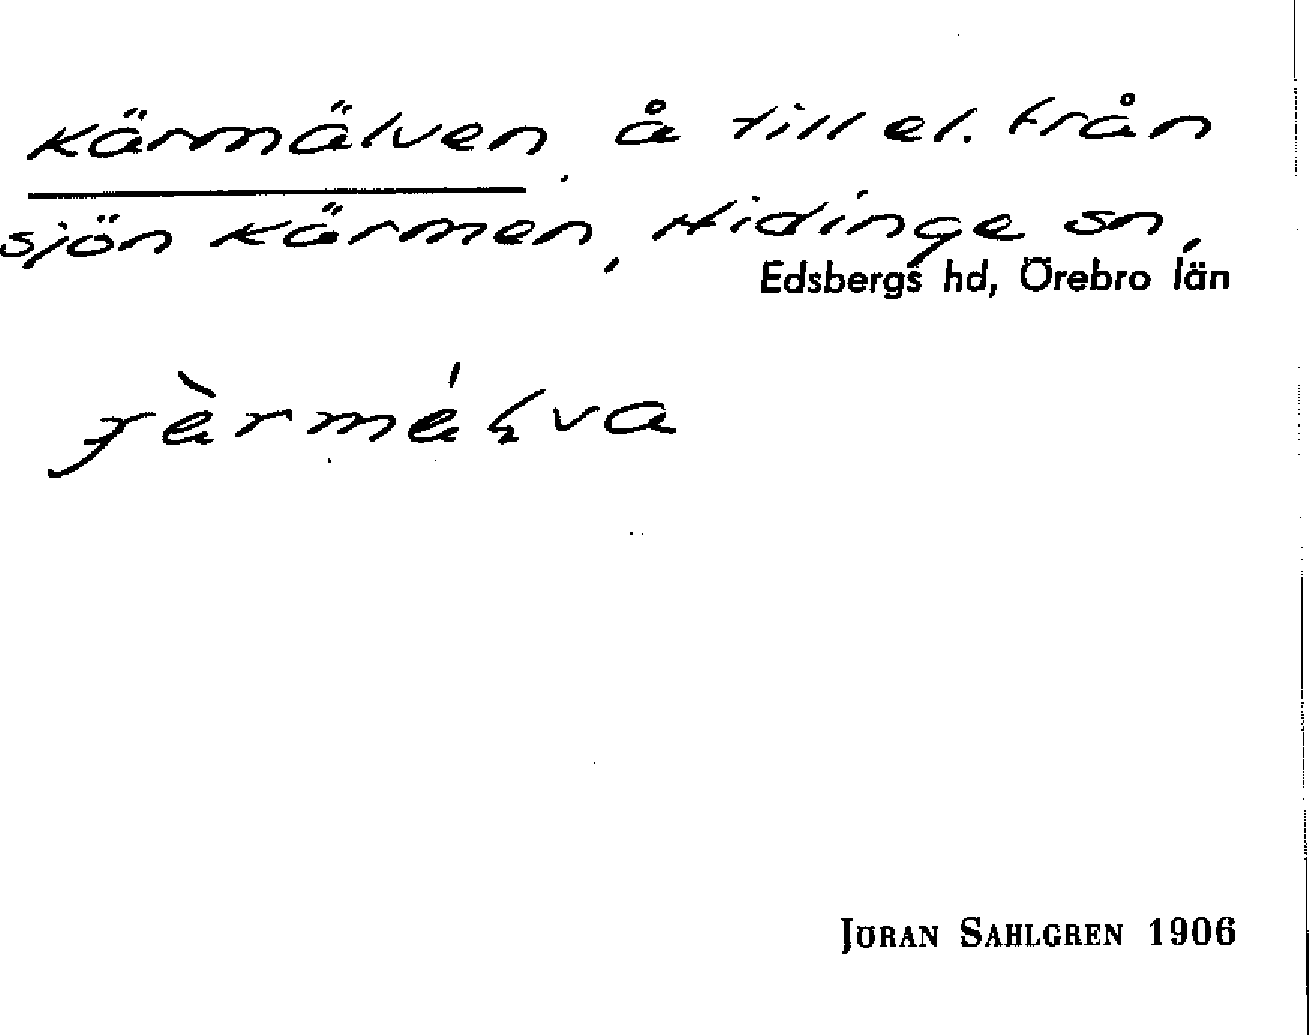 Kärmälven, å till el. från
sjön Kärmen, Hidinge sn,
Edsbergs hd, Örebro län
JÖRAN SAHLGREN 1906